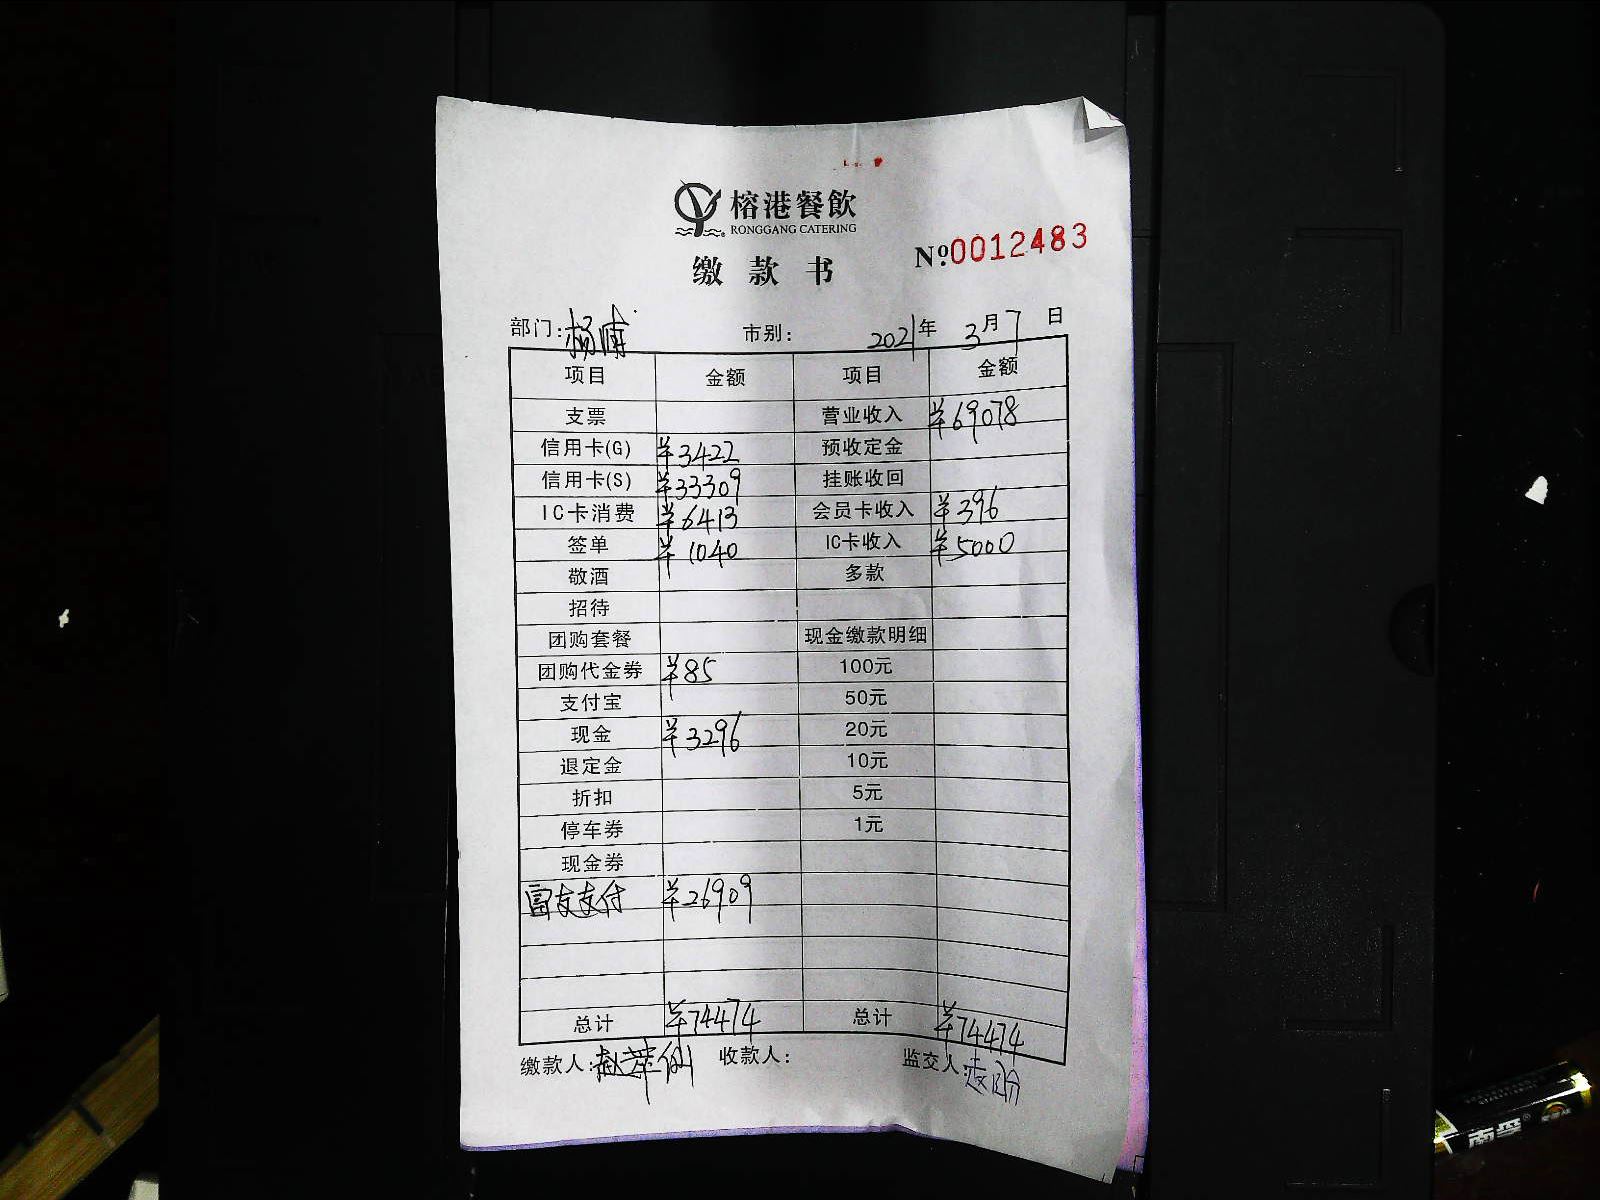 榕港餐飲
RONGGANG CATERING
№0012483
缴款书
部门:杨浦 市别: 2021年3月7日
项目 金额 项目 金额
支票 营业收入 ¥69078
信用卡(G) ¥3422 预收定金
信用卡(S) ¥33309 挂账收回
IC卡消费 ¥6413 会员卡收入 ¥396
签单 ¥1040 IC卡收入 ¥5000
敬酒 多款
招待
团购套餐 现金缴款明细
团购代金券 ¥85 100元
支付宝 50元
现金 ¥3296 20元
退定金 10元
折扣 5元
停车券 1元
现金券
富友支付 ¥26909
总计 ¥74474 总计 ¥74474
缴款人:赵萍仙 收款人: 监交人:
南孚